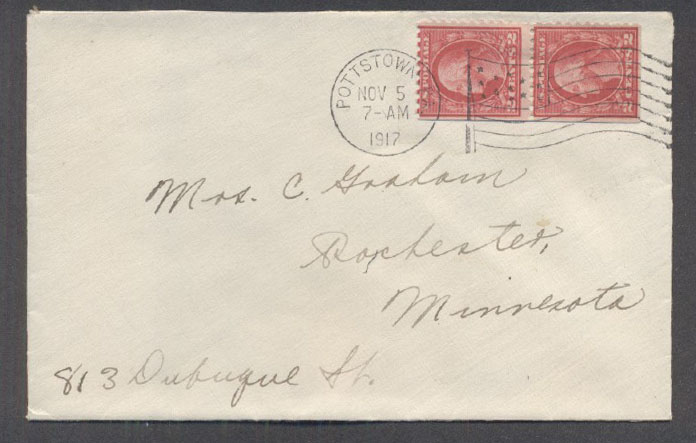 POTTSTOWN
NOV 5
7-AM
1917
U.S. POSTAGE
U.S. POSTAGE
Mrs. C. Graham
Rochester,
Minnesota
813 Dubuque St.